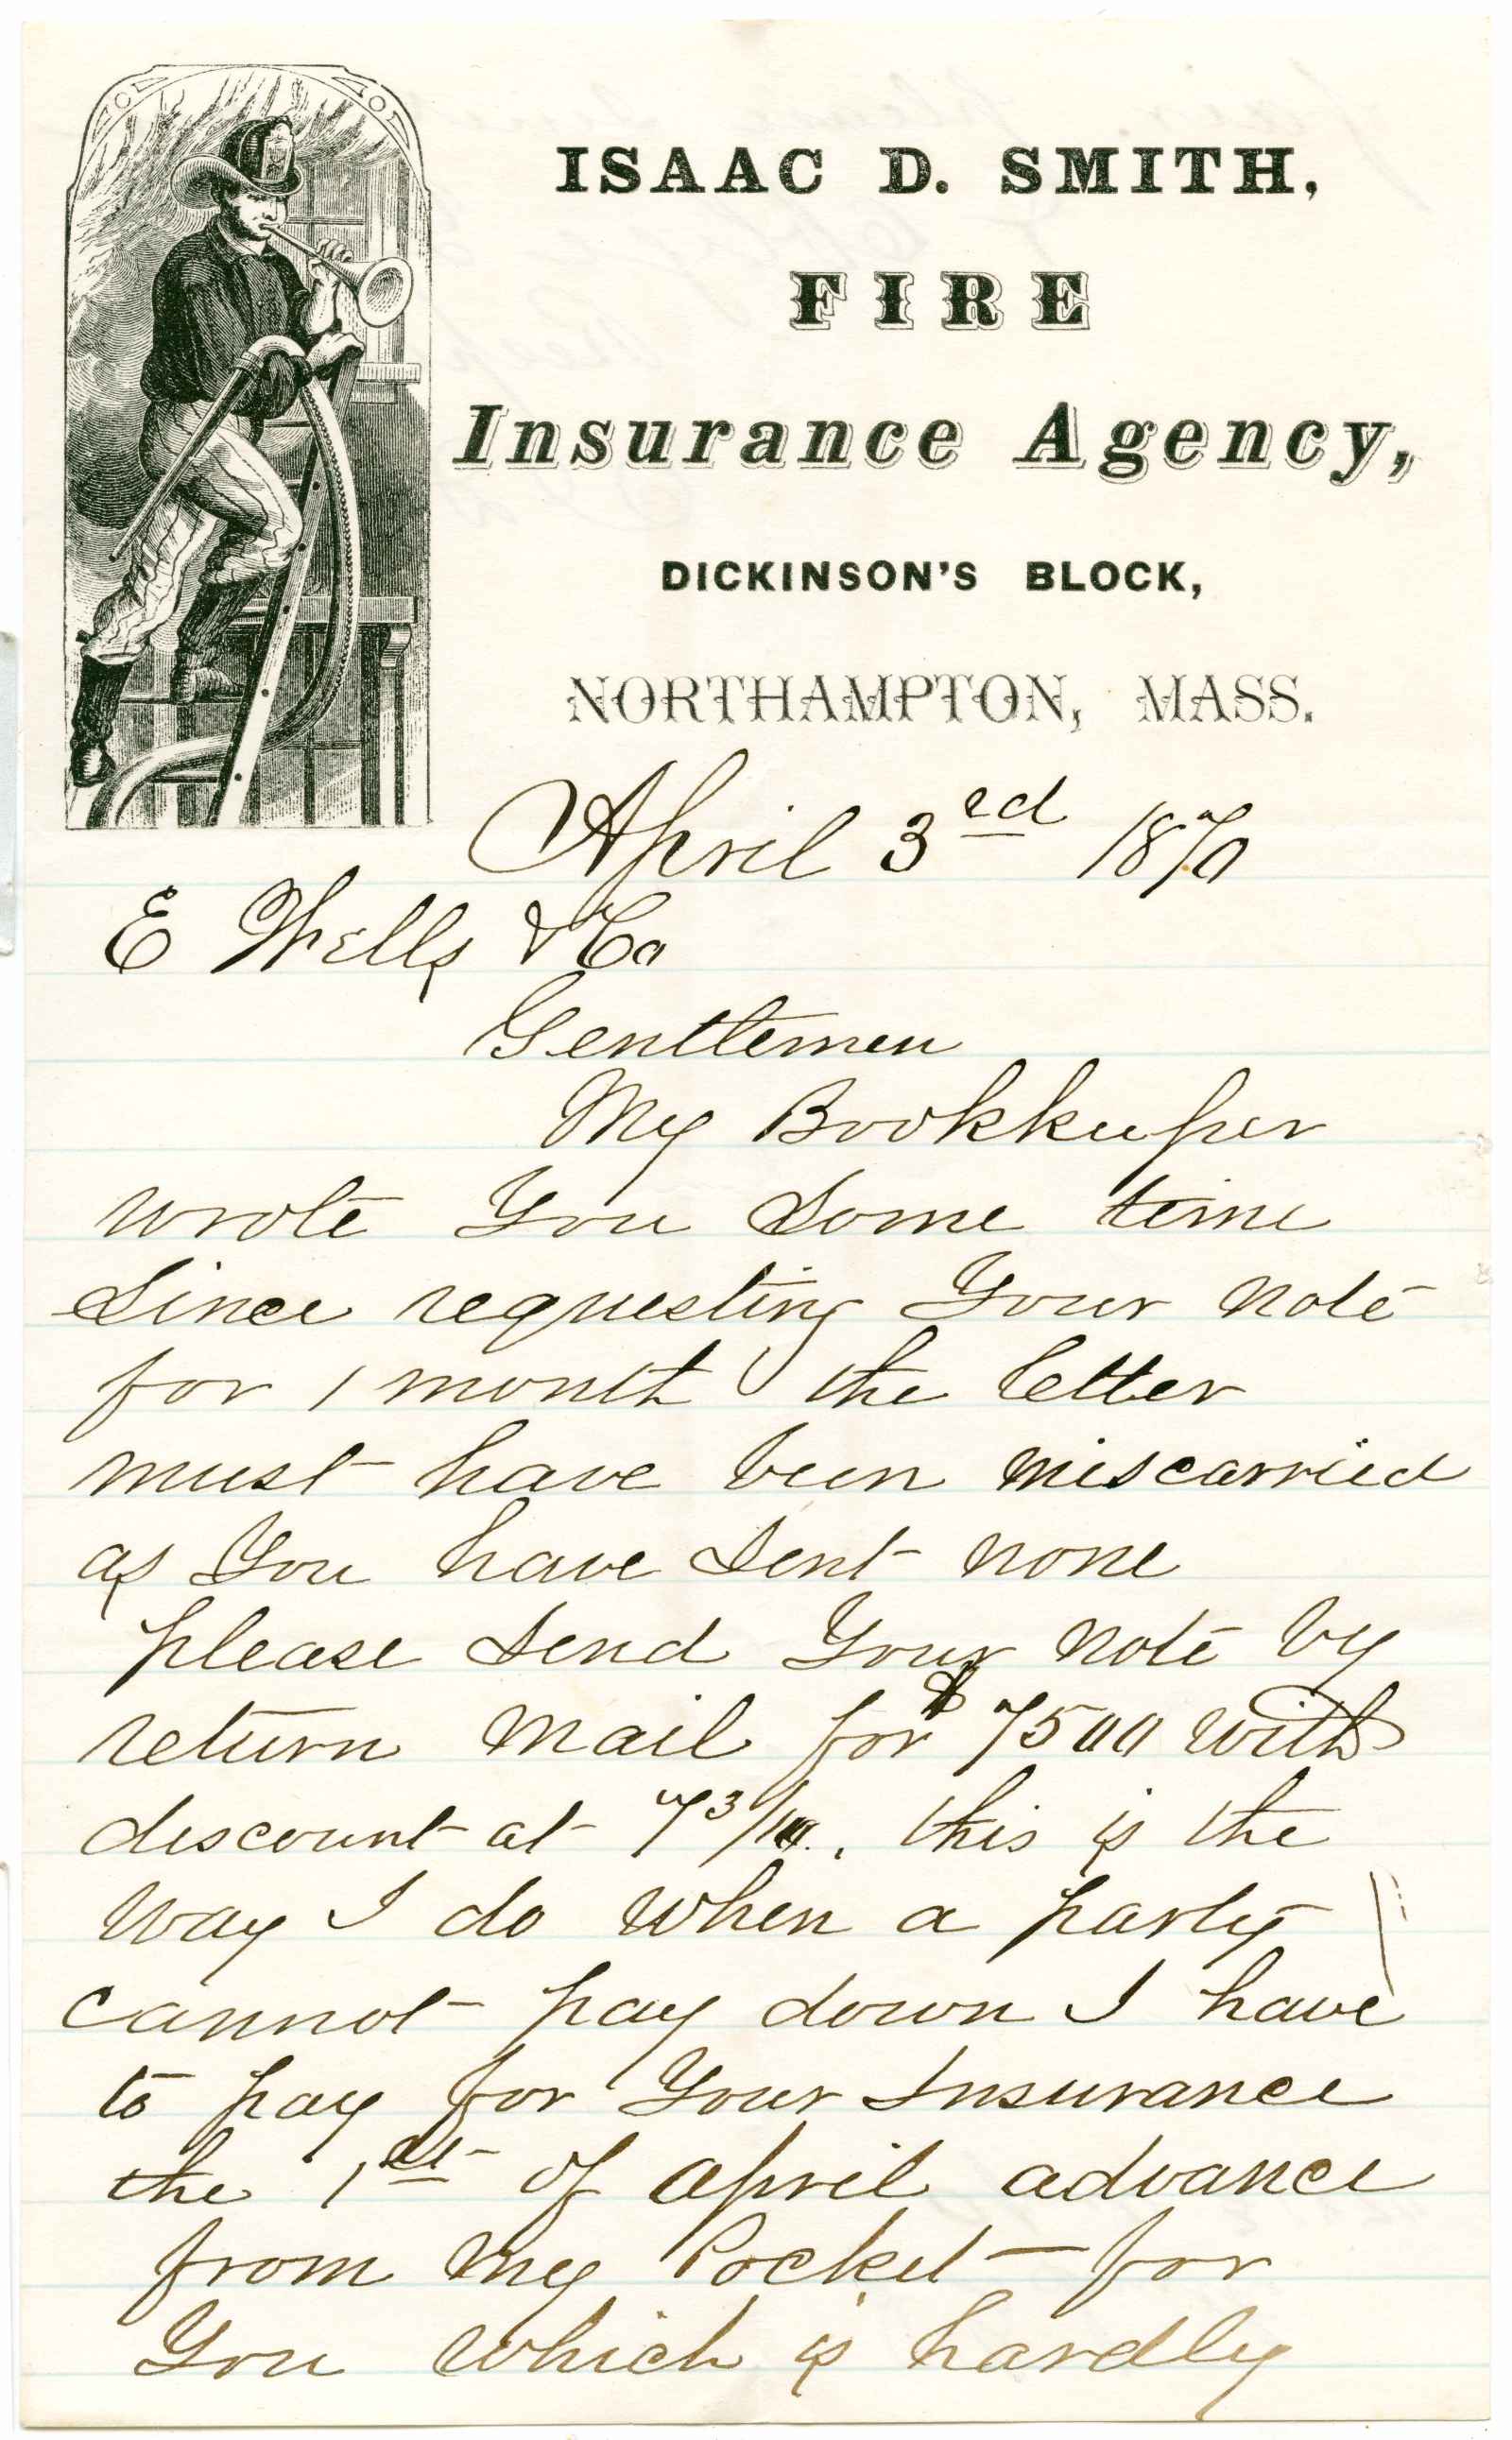 ISAAC D. SMITH,
FIRE
Insurance Agency,
DICKINSON'S BLOCK,
NORTHAMPTON, MASS.
April 3rd 1870
E Wells & Co
Gentlemen
My Bookkeeper
wrote You Some time
Since requesting Your note
for 1 month the letter
must have been miscarried
as You have Sent none
please Send Your note by
return mail for $7500 with
discount at 7 3/10., this is the
way I do when a party
cannot pay down I have
to pay for Your Insurance
the 1st of april advance
from my Pocket — for
You which is hardly